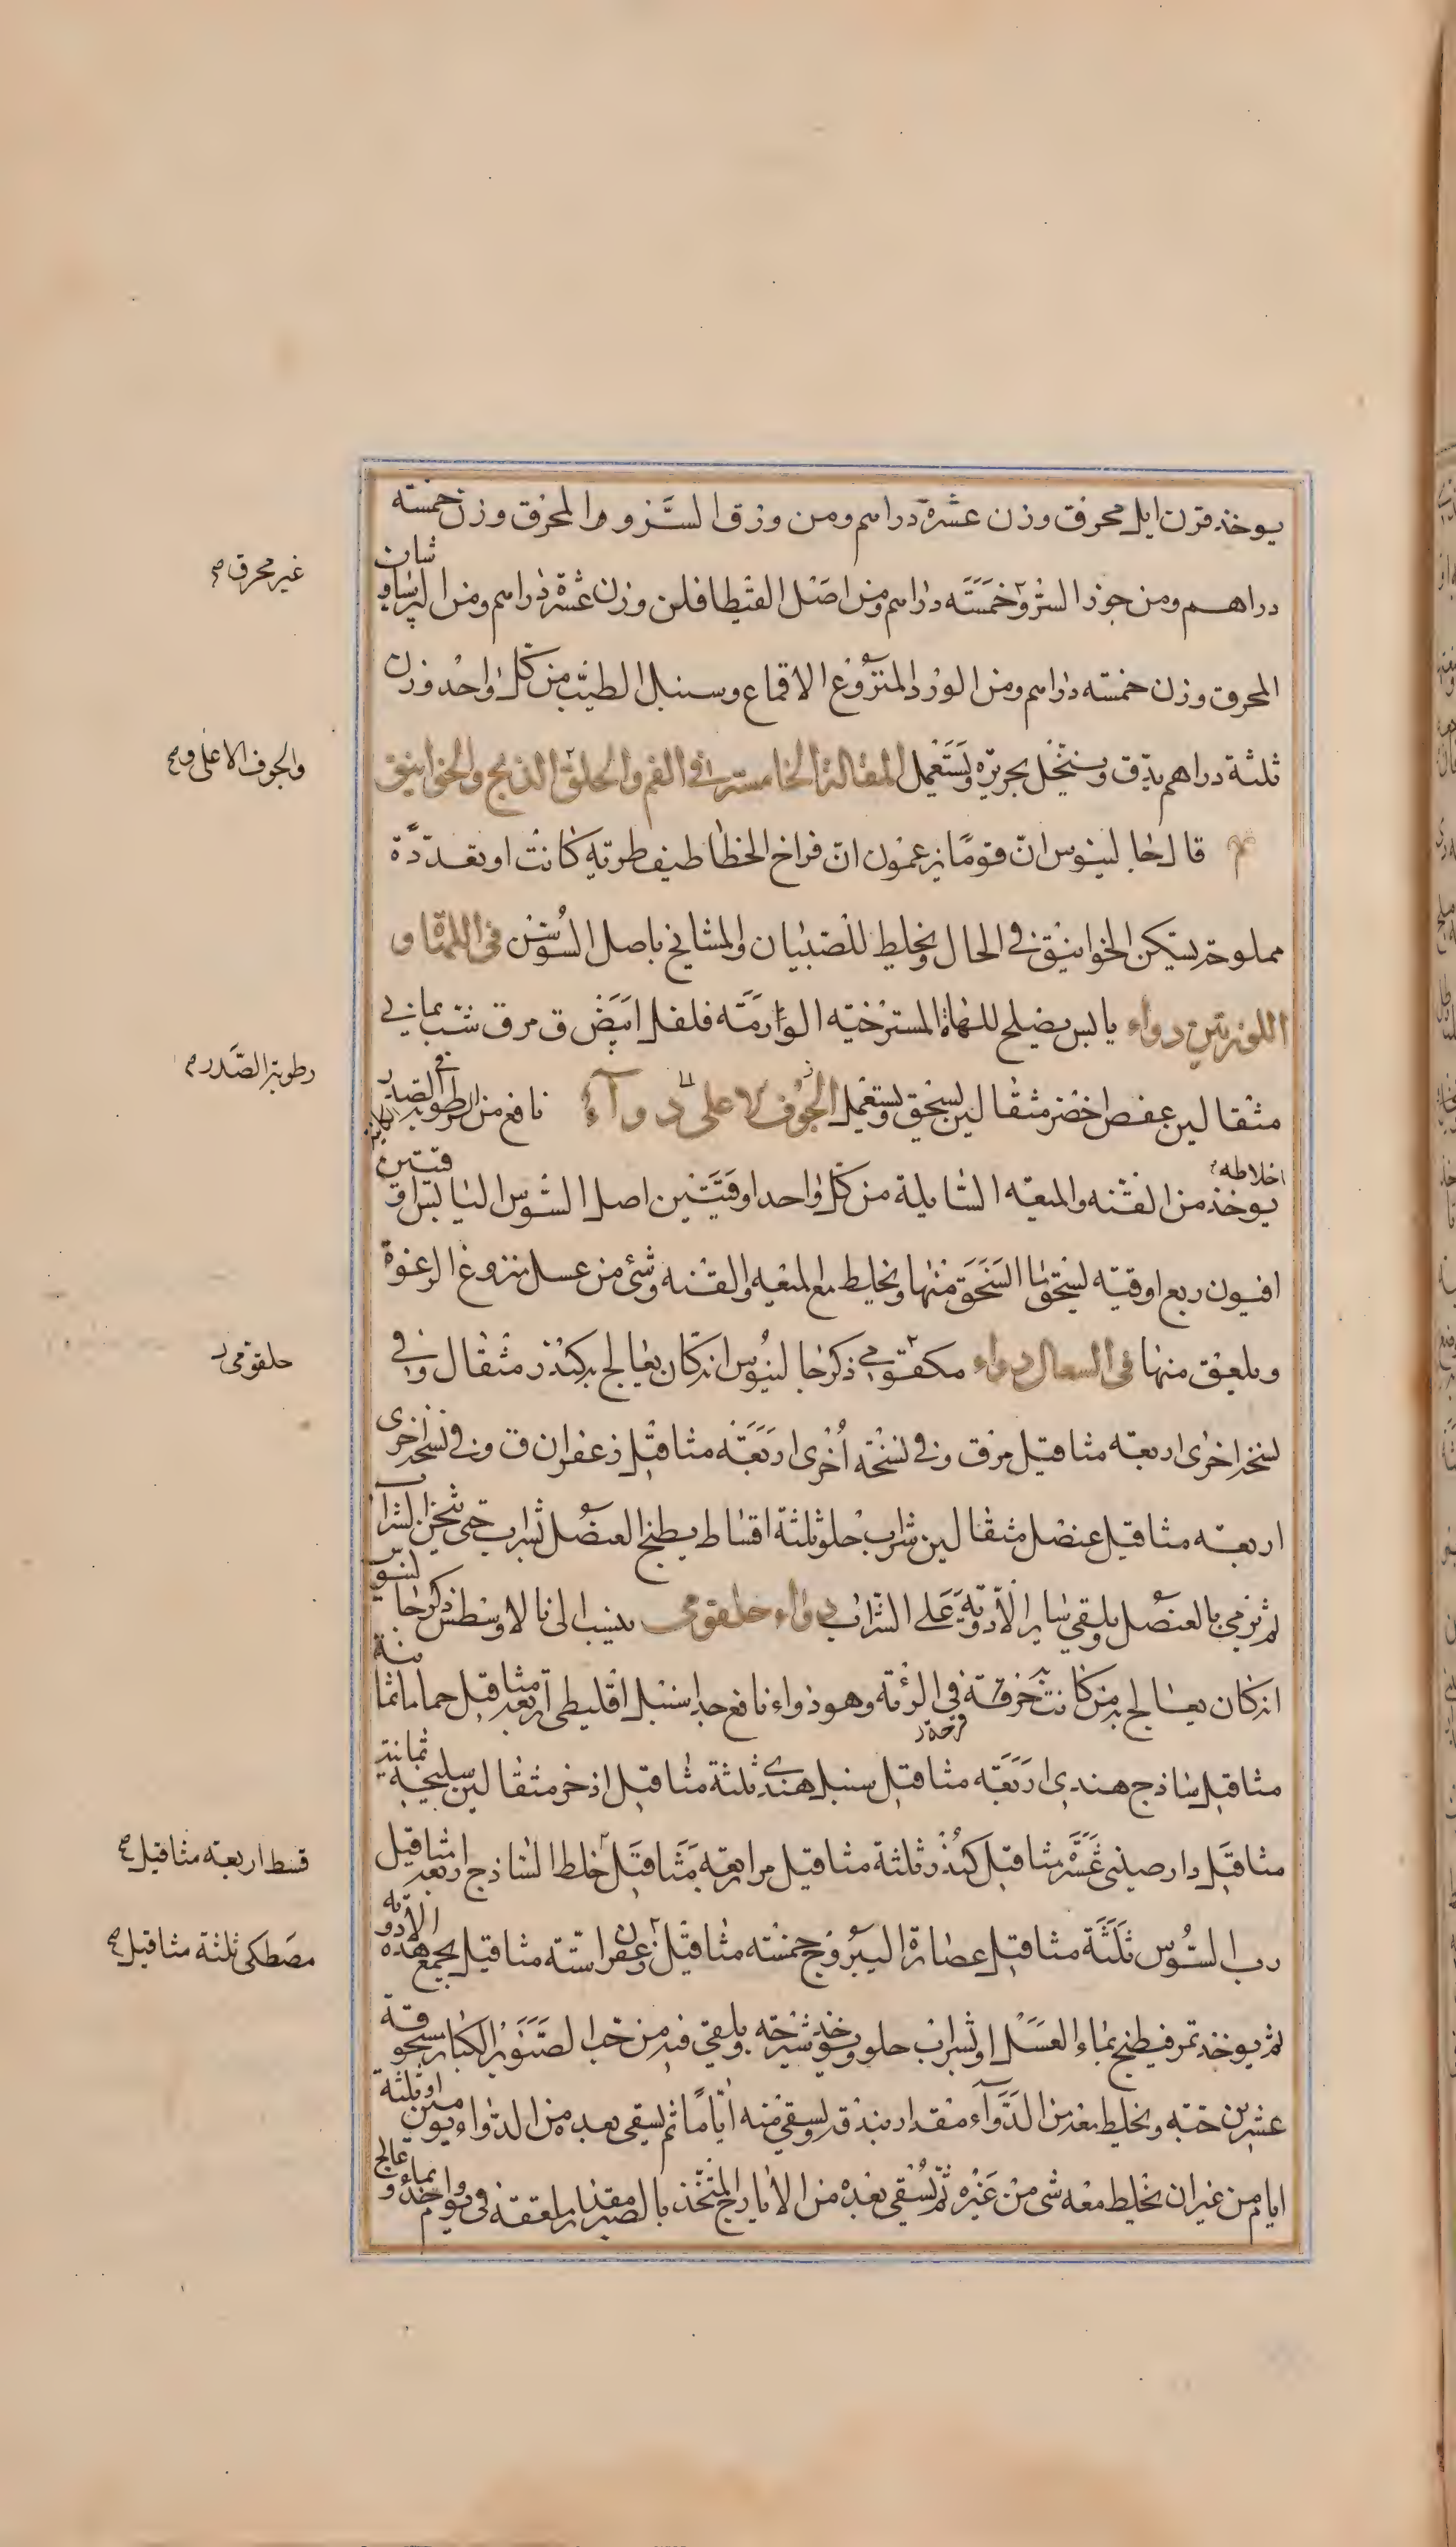 يوخذ قرن ايل محرق وزن عشرة دراهم ومن ورق السرو المحرق وزن خمسته
غير محرق صح
دراهم ومن جوز السرو خمسته دراهم ومن اصل القيطافلن وزن عشرة دراهم ومن البرساوشان
المحرق وزن خمسته دراهم ومن الورد المنزوع الاقماع وسنبل الطيب من كل واحد وزن
ثلثة دراهم يدق وينخل بحريره ويستعمل المقالة الخامسة في الفم والحلق الذبح والخوانيق
والجوف الاعلى وصح
قال جالينوس ان قوما يزعمون ان فراخ الخطاطيف طرية كانت او بعد
مملوحة يسكن الخوانيق في الحال ويخلط للصبيان والمشايخ باصل السوسن في اللهاة و
اللوزتين دواء يابس يصلح للهاة المسترخيه الوارمته فلفل ابيض ق مر ق شب يماني
مثقالين عفص اخضر مثقالين يسحق ويستعمل الجوف الاعلى دوآء نافع من الرطوبة في الصدر
رطوبة الصدر صح
اخلاطه
يوخذ من القنه والميعه السايلة من كل واحد اوقيتين اصل السوس اليابس اوقيتين
افيون ربع اوقيته يسحق ما انسحق منها ويخلط مع الميعه والقنه وشئ من عسل منزوع الرغوة
ويلعق منها في السعال دواء مكقومي ذكر جالينوس انه كان يعالج به كندر مثقال وفي
حلقومي
نسخة اخرى اربعته مثاقيل مر ق وفي نسخته اخرى اربعته مثاقيل زعفران ق وفي نسخة اخرى
اربعته مثاقيل عنصل مثقالين شراب حلو ثلثة اقساط يطبخ العنصل بشراب حتى يثخن الشراب
ثم يرمي بالعنصل ويلقى ساير الادوية على الشراب دواء حلقومي ينسب الى نالاوسطس ذكر جالينوس
انه كان يعالج به من كانت به خرقة في الرئة وهو دواء نافع جدا سنبل اقليطي اربعة مثاقيل حماما ثمانية
قرحة
مثاقيل ساذج هندي اربعته مثاقيل سنبل هندي ثلثة مثاقيل اذخر مثقالين سليخه ثمانية
مثاقيل دارصيني عشر مثاقيل كندر ثلثة مثاقيل مر اربعة مثاقيل خلط الساذج اربعة مثاقيل
قسط اربعة مثاقيل صح
رب السوس ثلثة مثاقيل عصارة اليبروج خمسته مثاقيل زعفران ستة مثاقيل يجمع هذه الادويه
مصطكى ثلثة مثاقيل صح
ثم يوخذ تمر فيطبخ بماء العسل او بشراب حلو ويوخذ شيرجه ويلقى فيه من حب الصنوبر الكبار مسحوقة
عشرين حبته ويخلط معه من الدوآء مقدار بندقه ويسقى منه اياما ثم يسقى بعده من الدواء يومين او ثلثة
ايام من غير ان يخلط معه شئ من غيره ثم يسقى بعده من الايارج المتخذ بالصبر مقدار ملعقة في يوم واحد بماء